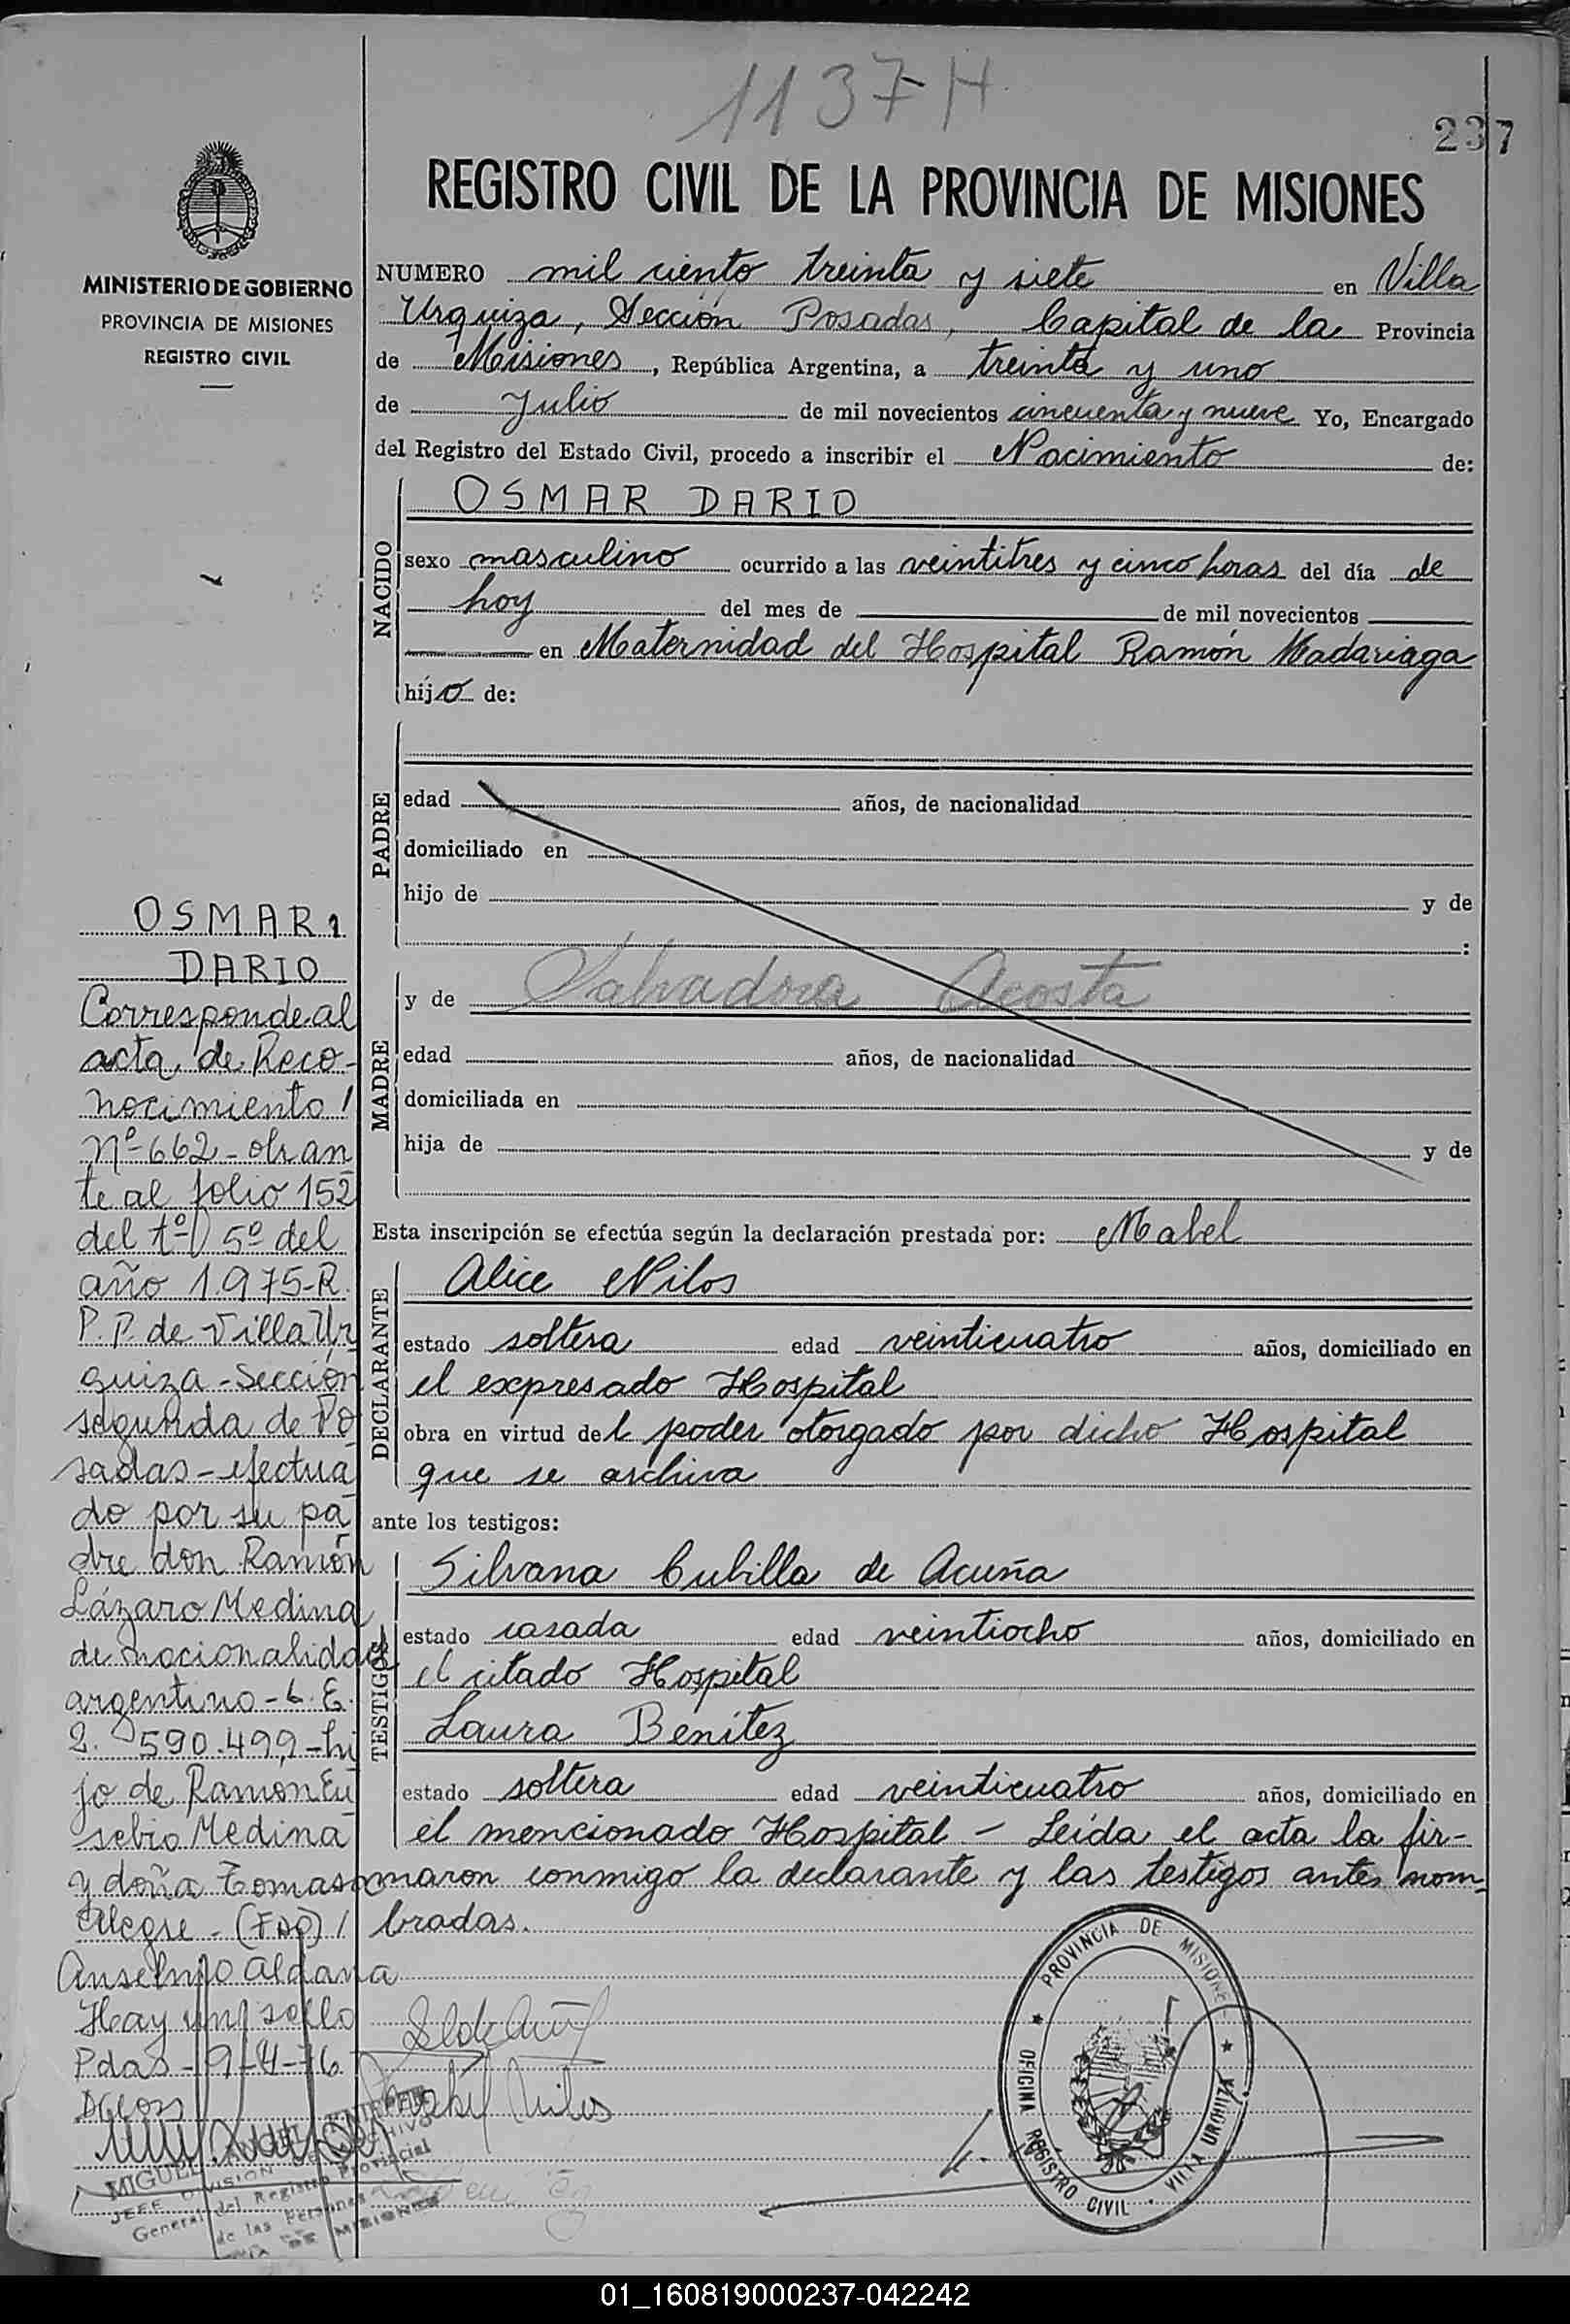 1137 H
237
MINISTERIO DE GOBIERNO
PROVINCIA DE MISIONES
REGISTRO CIVIL
REGISTRO CIVIL DE LA PROVINCIA DE MISIONES
NUMERO mil ciento treinta y siete en Villa
Urquiza, Sección Posadas, Capital de la Provincia
de Misiones, República Argentina, a treinta y uno
de Julio de mil novecientos cincuenta y nueve Yo, Encargado
del Registro del Estado Civil, procedo a inscribir el Nacimiento de:
NACIDO
OSMAR DARIO
sexo masculino ocurrido a las veintitres y cinco horas del día de
hoy del mes de de mil novecientos
en Maternidad del Hospital Ramón Madariaga
hijo de:
PADRE
edad años, de nacionalidad
domiciliado en
hijo de y de
:
MADRE
y de Salvadora Acosta
edad años, de nacionalidad
domiciliada en
hija de y de
Esta inscripción se efectúa según la declaración prestada por: Mabel
DECLARANTE
Alice Nilos
estado soltera edad veinticuatro años, domiciliado en
el expresado Hospital
obra en virtud del poder otorgado por dicho Hospital
que se archiva
ante los testigos:
TESTIGOS
Silvana Cubilla de Acuña
estado casada edad veintiocho años, domiciliado en
el citado Hospital
Laura Benítez
estado soltera edad veinticuatro años, domiciliado en
el mencionado Hospital - Leída el acta la fir-
maron conmigo la declarante y las testigos antes nom-
bradas.
OSMAR
DARIO
Corresponde al
acta de Reco-
nocimiento
Nº 662 - obran
te al folio 152
del tº 5º del
año 1975-R.
P.P. de Villa Ur
quiza - Sección
segunda de Po
sadas - efectua
do por su pa
dre don Ramón
Lázaro Medina
de nacionalidad
argentino - L.E.
2.590.499 - hi
jo de Ramon Eu
sebio Medina
y doña Tomasa
Alegre - (FDO)
Anselmo Aldana
Hay un sello
Pdas - 9-4-76
MIGUEL
JEFE DIVISION ARCHIVO
General del Registro Provincial
de las Personas
DE MISIONES
Mabel Nilos
PROVINCIA DE MISIONES
OFICINA REGISTRO CIVIL · VILLA URQUIZA
01_160819000237-042242